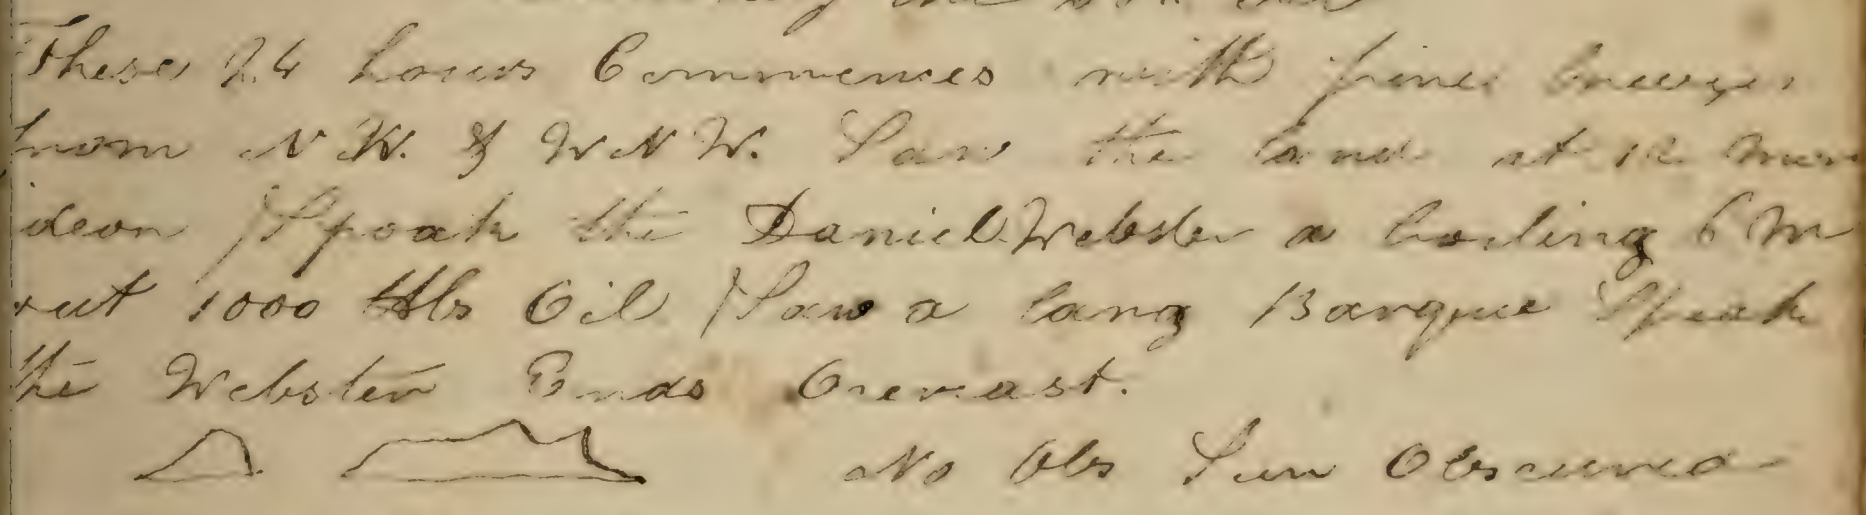 These 24 hours Commences with fine breezes
from N W. & W N W. Saw the land at 12 mer
idean Spoak the Daniel Webster a boiling 6 M
out 1000 bbls Oil Saw a large Barque Speak
the Webster Ends Overcast.
No Obs Sun Obscured